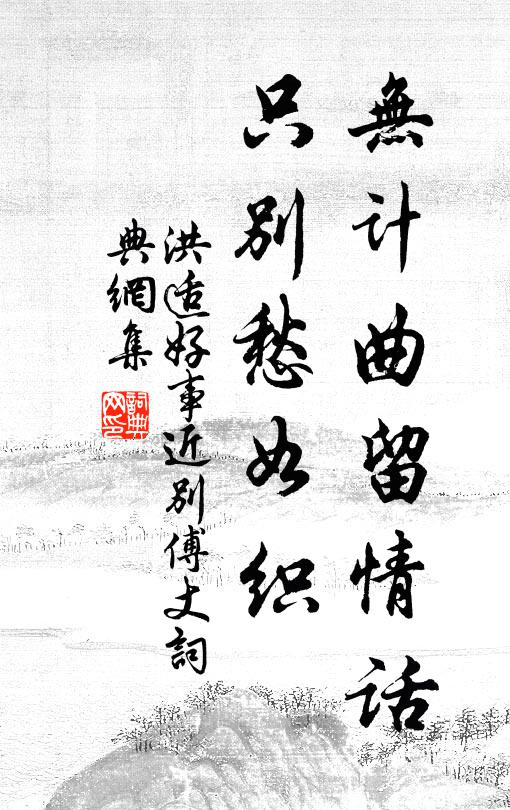 無计曲留情话
只别愁如织
洪适好事近别傅丈詞
典網集
詞典网印